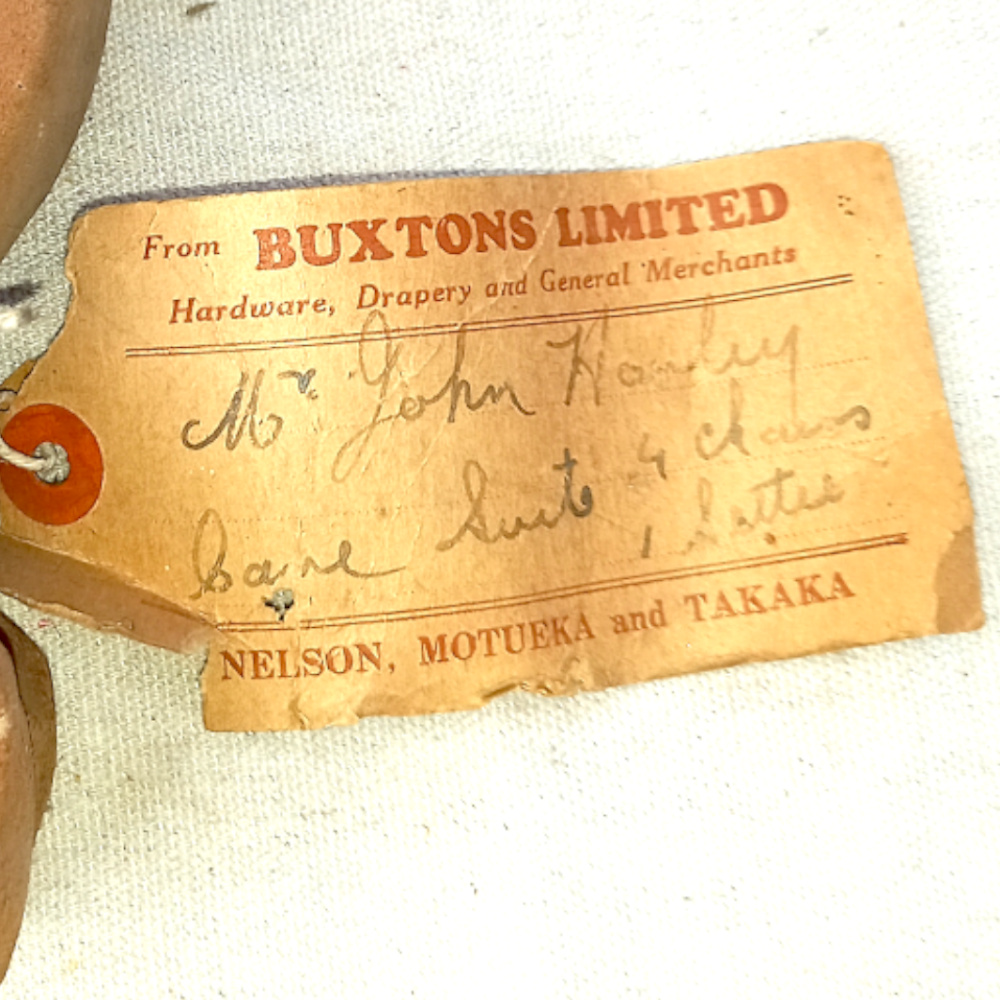 From BUXTONS LIMITED
Hardware, Drapery and General Merchants
Mr John
Cane Suit 4 chairs
1 Settee
NELSON, MOTUEKA and TAKAKA